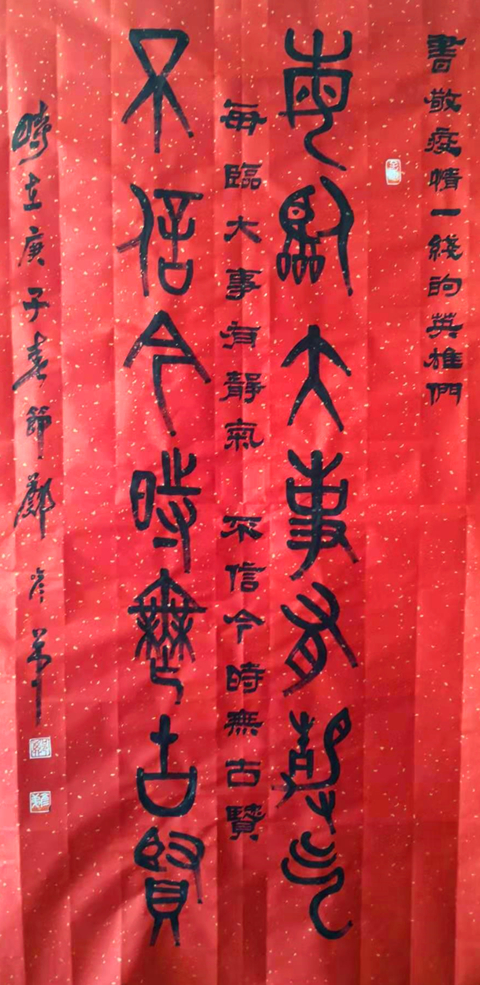 書敬疫情一綫的英雄們
每臨大事有靜氣
每臨大事有靜氣 不信今時無古賢
不信今時無古賢
時在庚子春節鄭